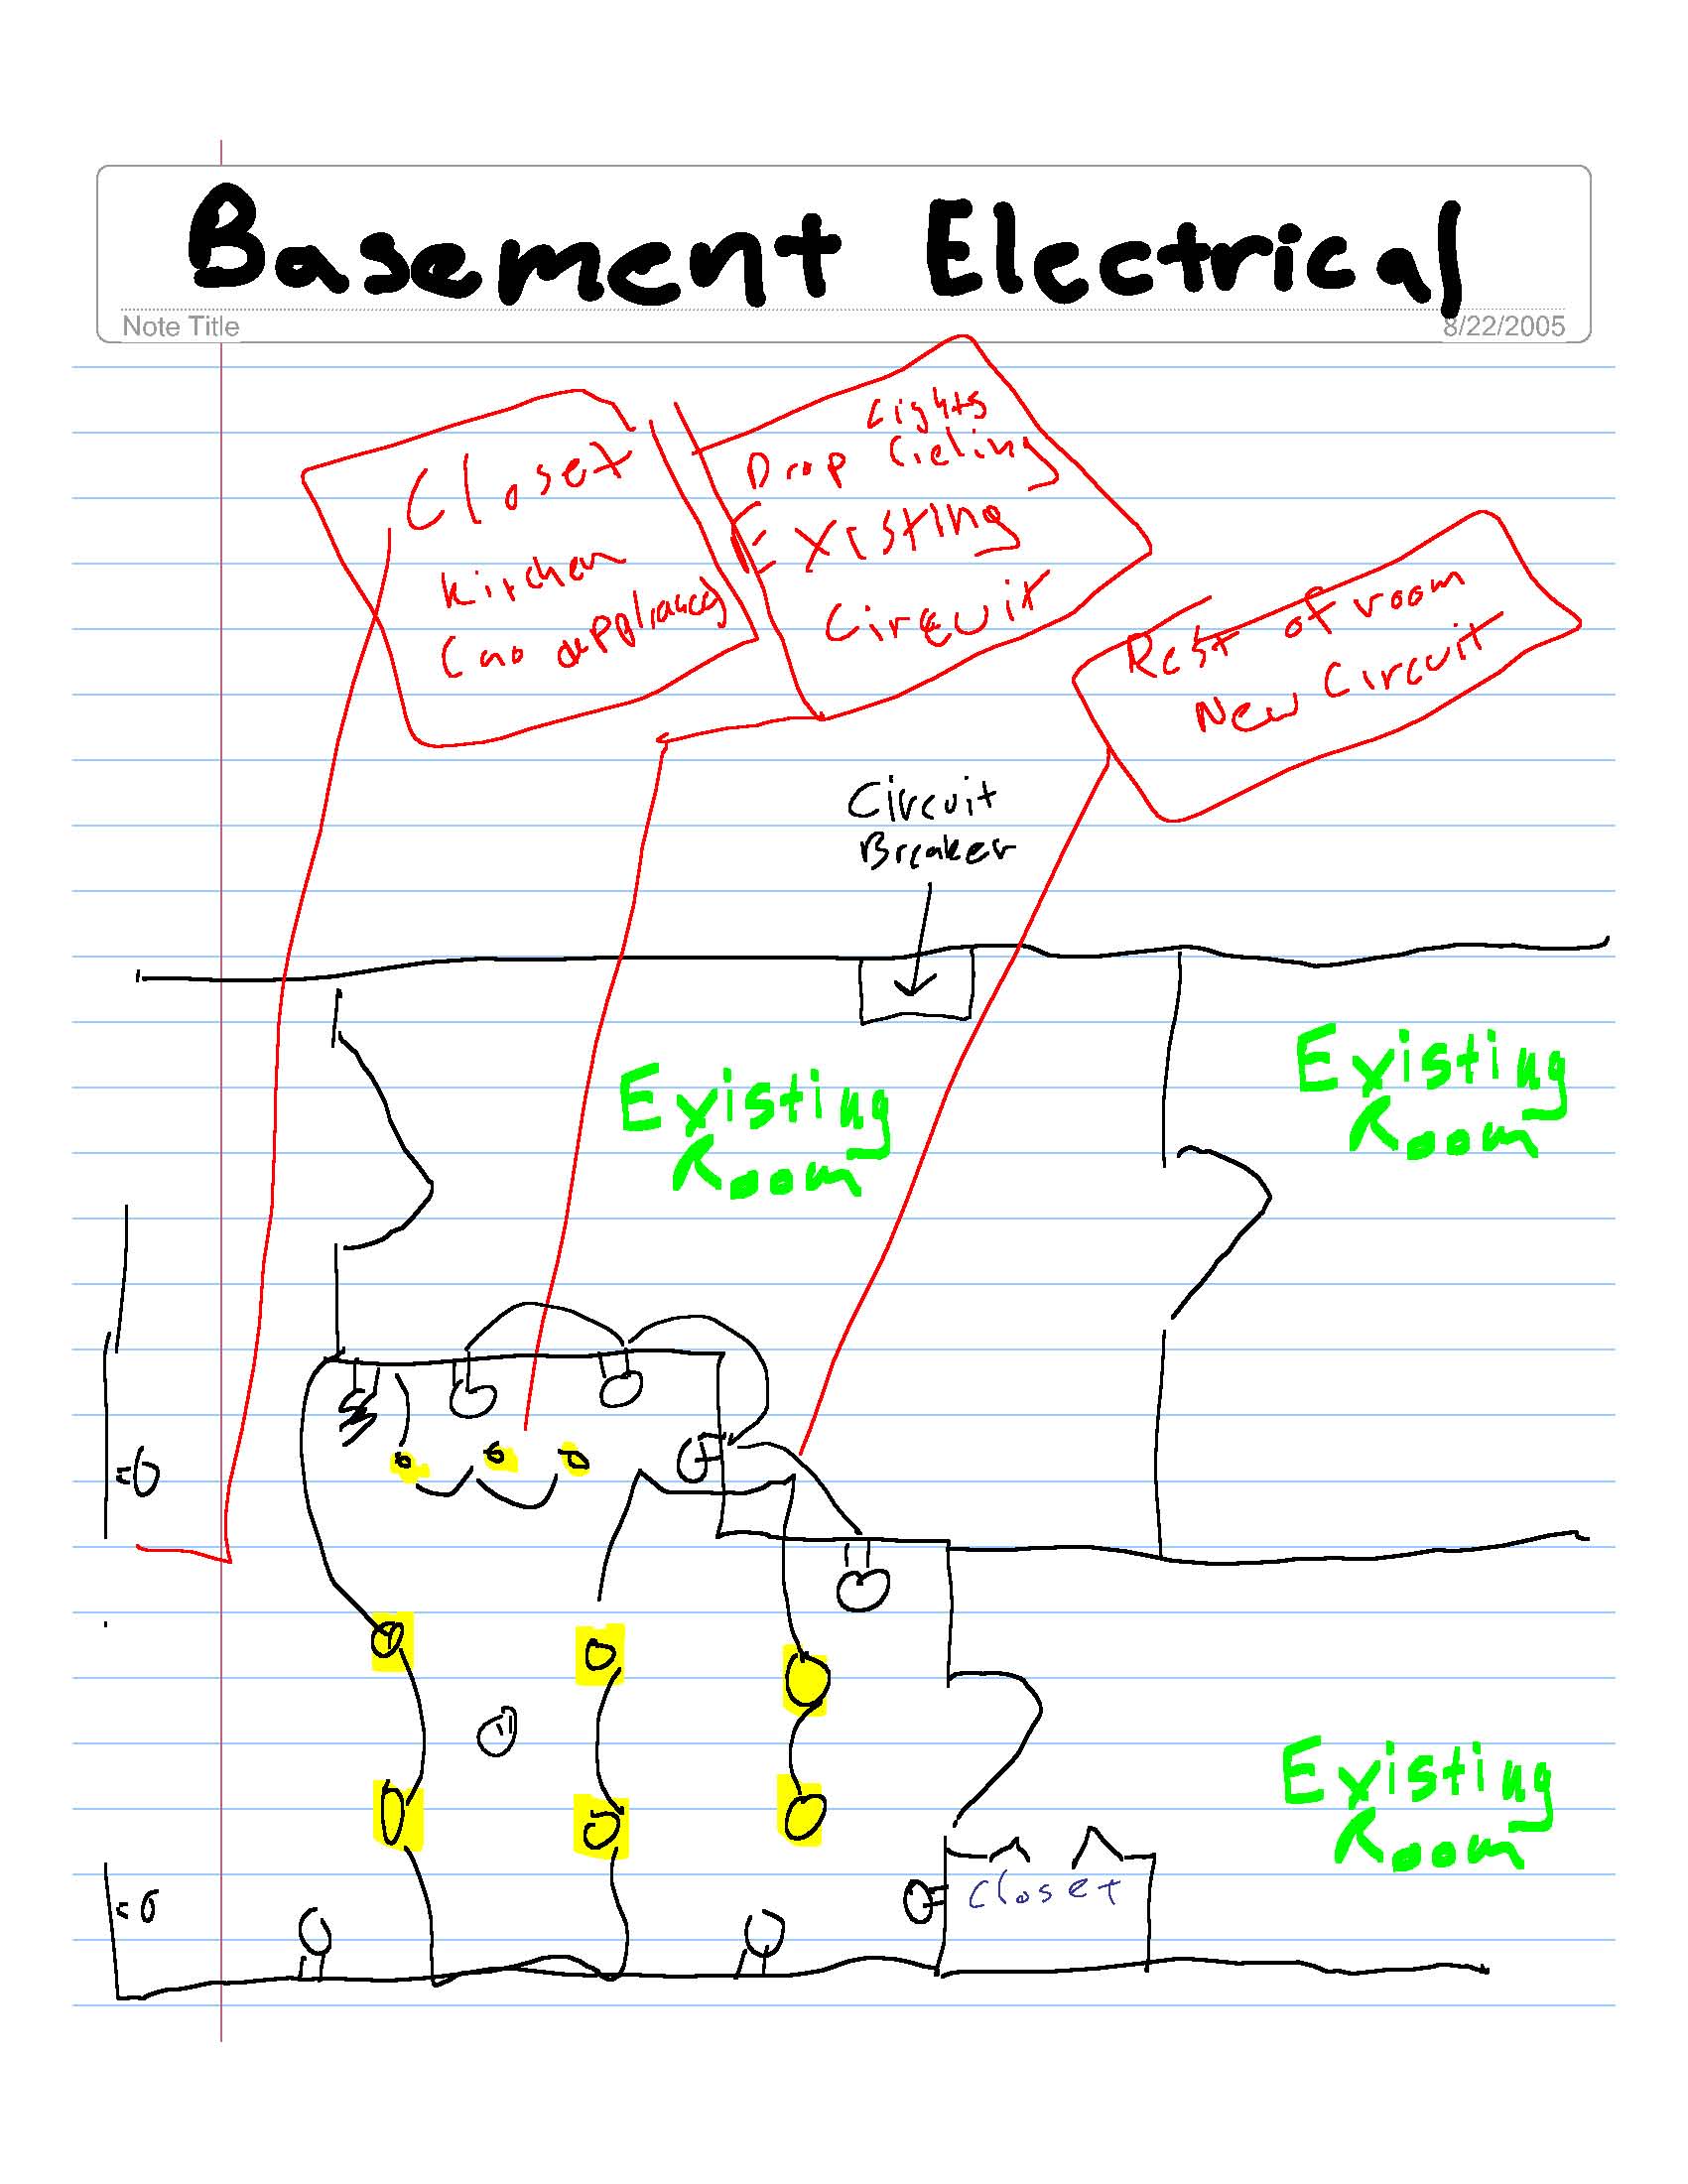 Basement Electrical
Note Title
8/22/2005
Closet
kitchen
(no appliances)
Lights
Drop Cieling
Existing
Circuit
Rest of room
New Circuit
Circuit
Breaker
Existing
Room
Existing
Room
Existing
Room
Closet